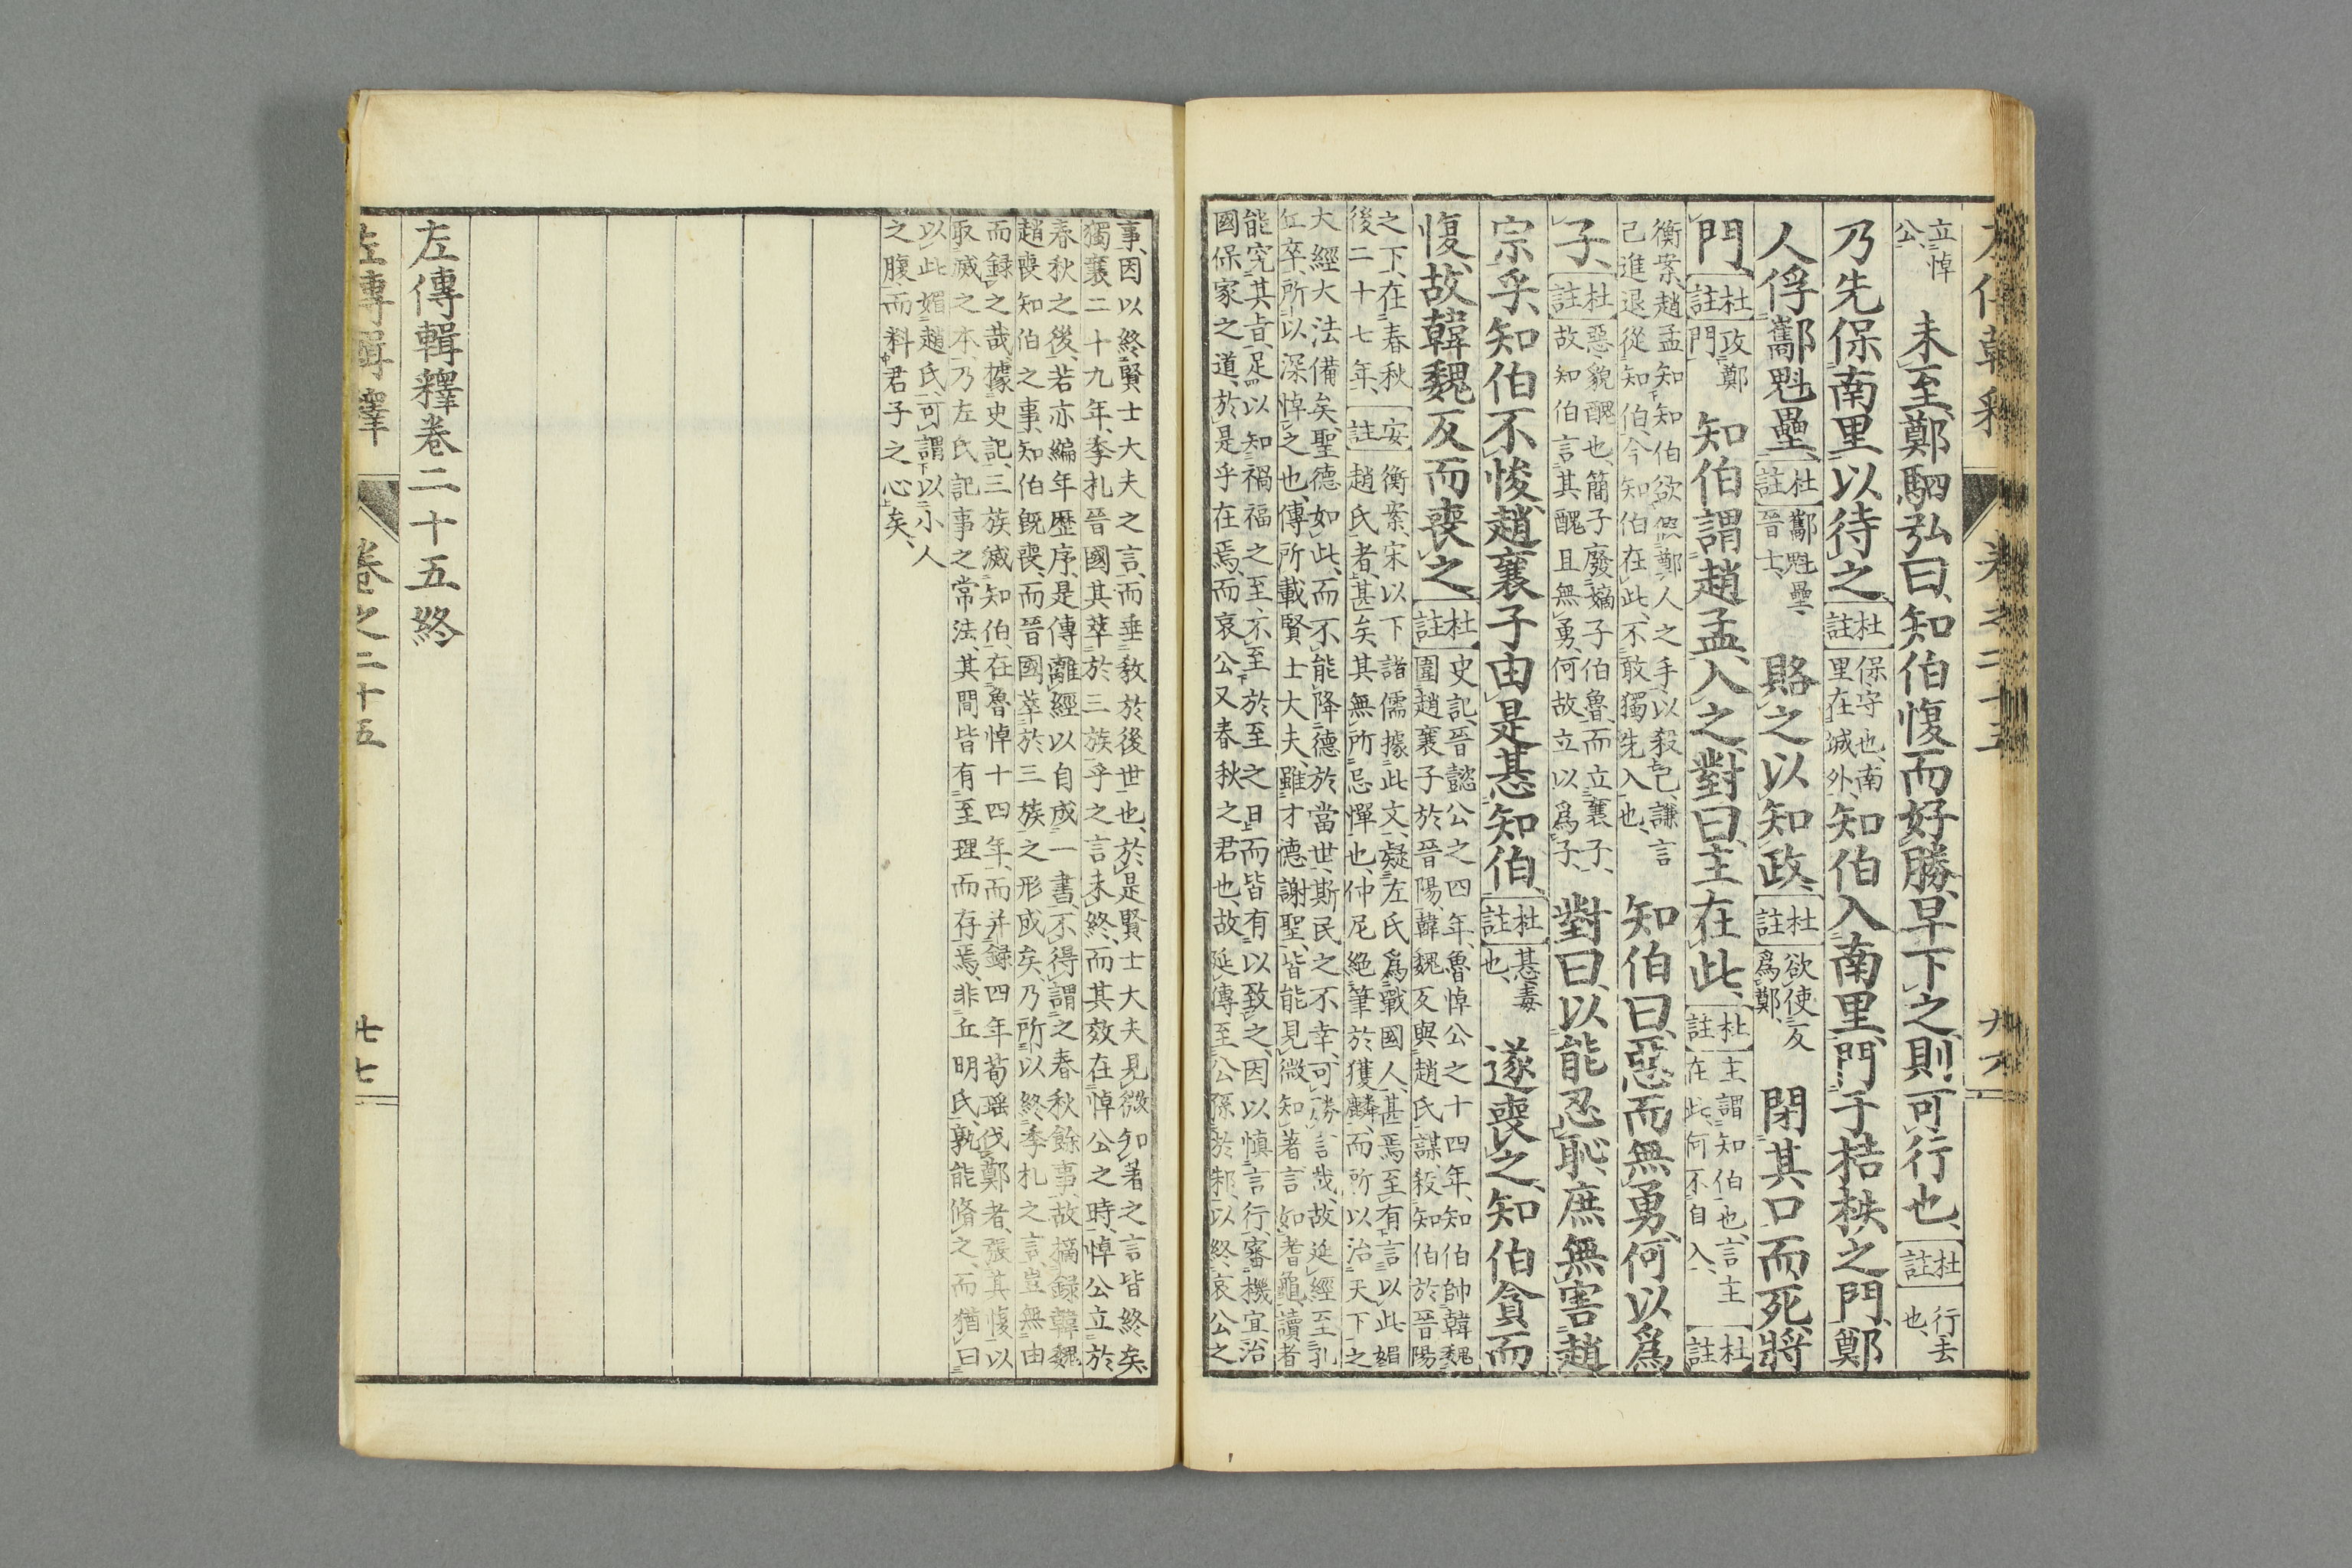 立悼公、未至、鄭駟弘曰、知伯愎而好勝、早下之、則可行也、杜註行去也、
乃先保南里以待之、杜註保守也、南里在城外、知伯入南里、門于桔柣之門、鄭
人俘酅魁壘、杜註酅魁壘、晉士、賂之以知政、杜註欲使反爲鄭、閉其口而死、將
門、杜註攻鄭門知伯謂趙孟、入之、對曰、主在此、杜註主謂知伯也、言主在此、何不自入、杜註
衡案、趙孟知知伯欲假鄭人之手以殺己、謙言己進退從知伯、今知伯在此、不敢獨先入也、知伯曰、惡而無勇、何以爲
子、杜註惡貌醜也、簡子廢嫡子伯魯、而立襄子、故知伯言其醜且無勇、何故立以爲子、對曰、以能忍恥、庶無害趙
宗乎、知伯不悛、趙襄子由是惎知伯、杜註惎毒也、遂喪之、知伯貪而
愎、故韓魏反而喪之、杜註史記、晉懿公之四年、魯悼公之十四年、知伯帥韓魏圍趙襄子於晉陽、韓魏反與趙氏謀、殺知伯於晉陽
之下、在春秋後二十七年、安註衡案、宋以下諸儒據此文、疑左氏爲戰國人、甚焉至有言以此媚趙氏者、甚矣、其無所忌憚也、仲尼絶筆於獲麟、而所以治天下之
大經大法備矣、聖德如此、而不能降德於當世、斯民之不幸、可勝言哉、故延經至孔丘卒、所以深悼之也、傳所載賢士大夫、雖才德謝聖、皆能見微知著、言如耆龜、讀者
能究其旨、足以知禍福之至、不至於至之日、而皆有以致之、因以愼言行、審機宜、治國保家之道、於是乎在焉、而哀公又春秋之君也、故延傳至公孫於邾、以終哀公之
事、因以終賢士大夫之言、而垂敎於後世也、於是賢士大夫見微知著之言皆終矣、獨襄二十九年、季札晉國其萃於三族乎之言未終、而其效在悼公之時、悼公立於
春秋之後、若亦編年歷序、是傳離經以自成一書、不得謂之春秋餘事、故摘録韓魏趙喪知伯之事、知伯旣喪、而晉國萃於三族之形成矣、乃所以終季札之言、豈無由
而録之哉、據史記、三族滅知伯、在魯悼十四年、而幷録四年荀瑤伐鄭者、張其愎以取滅之本、乃左氏記事之常法、其間皆有至理而存焉、非丘明氏、孰能脩之、而猶曰
以此媚趙氏、可謂以小人之腹、而料君子之心矣、
左傳輯釋卷二十五終
左傳輯釋 卷之二十五 廿七